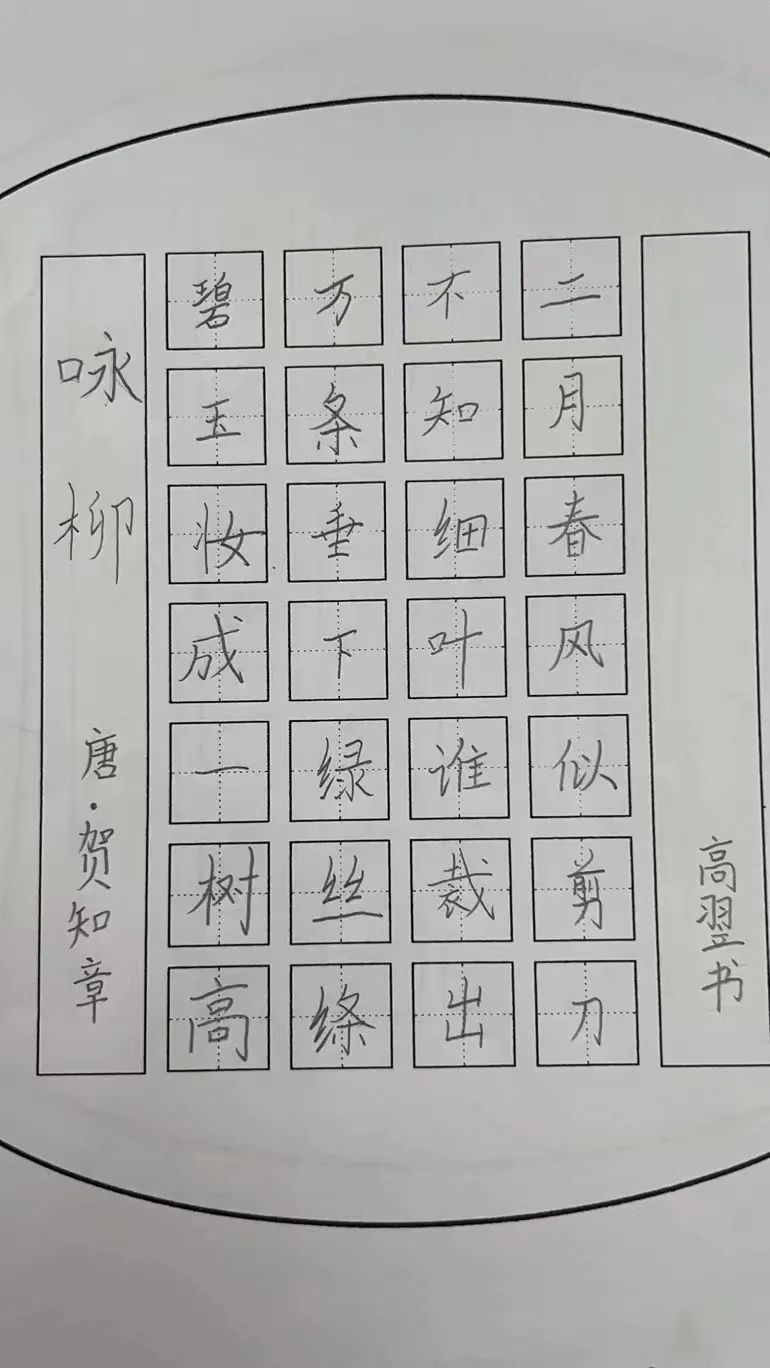 咏柳 唐·贺知章
碧玉妆成一树高
万条垂下绿丝绦
不知细叶谁裁出
二月春风似剪刀
高翌书